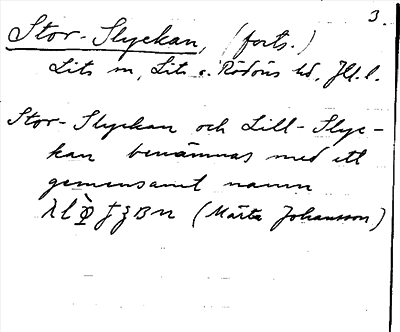 3.
Stor-Slyckan, (forts.)
Lits sn, Lits o. Rödöns hd, Jtl. l.
Stor-Slyckan och Lill-Slyc-
kan benämnas med ett
gemensamt namn
(Märta Johansson)